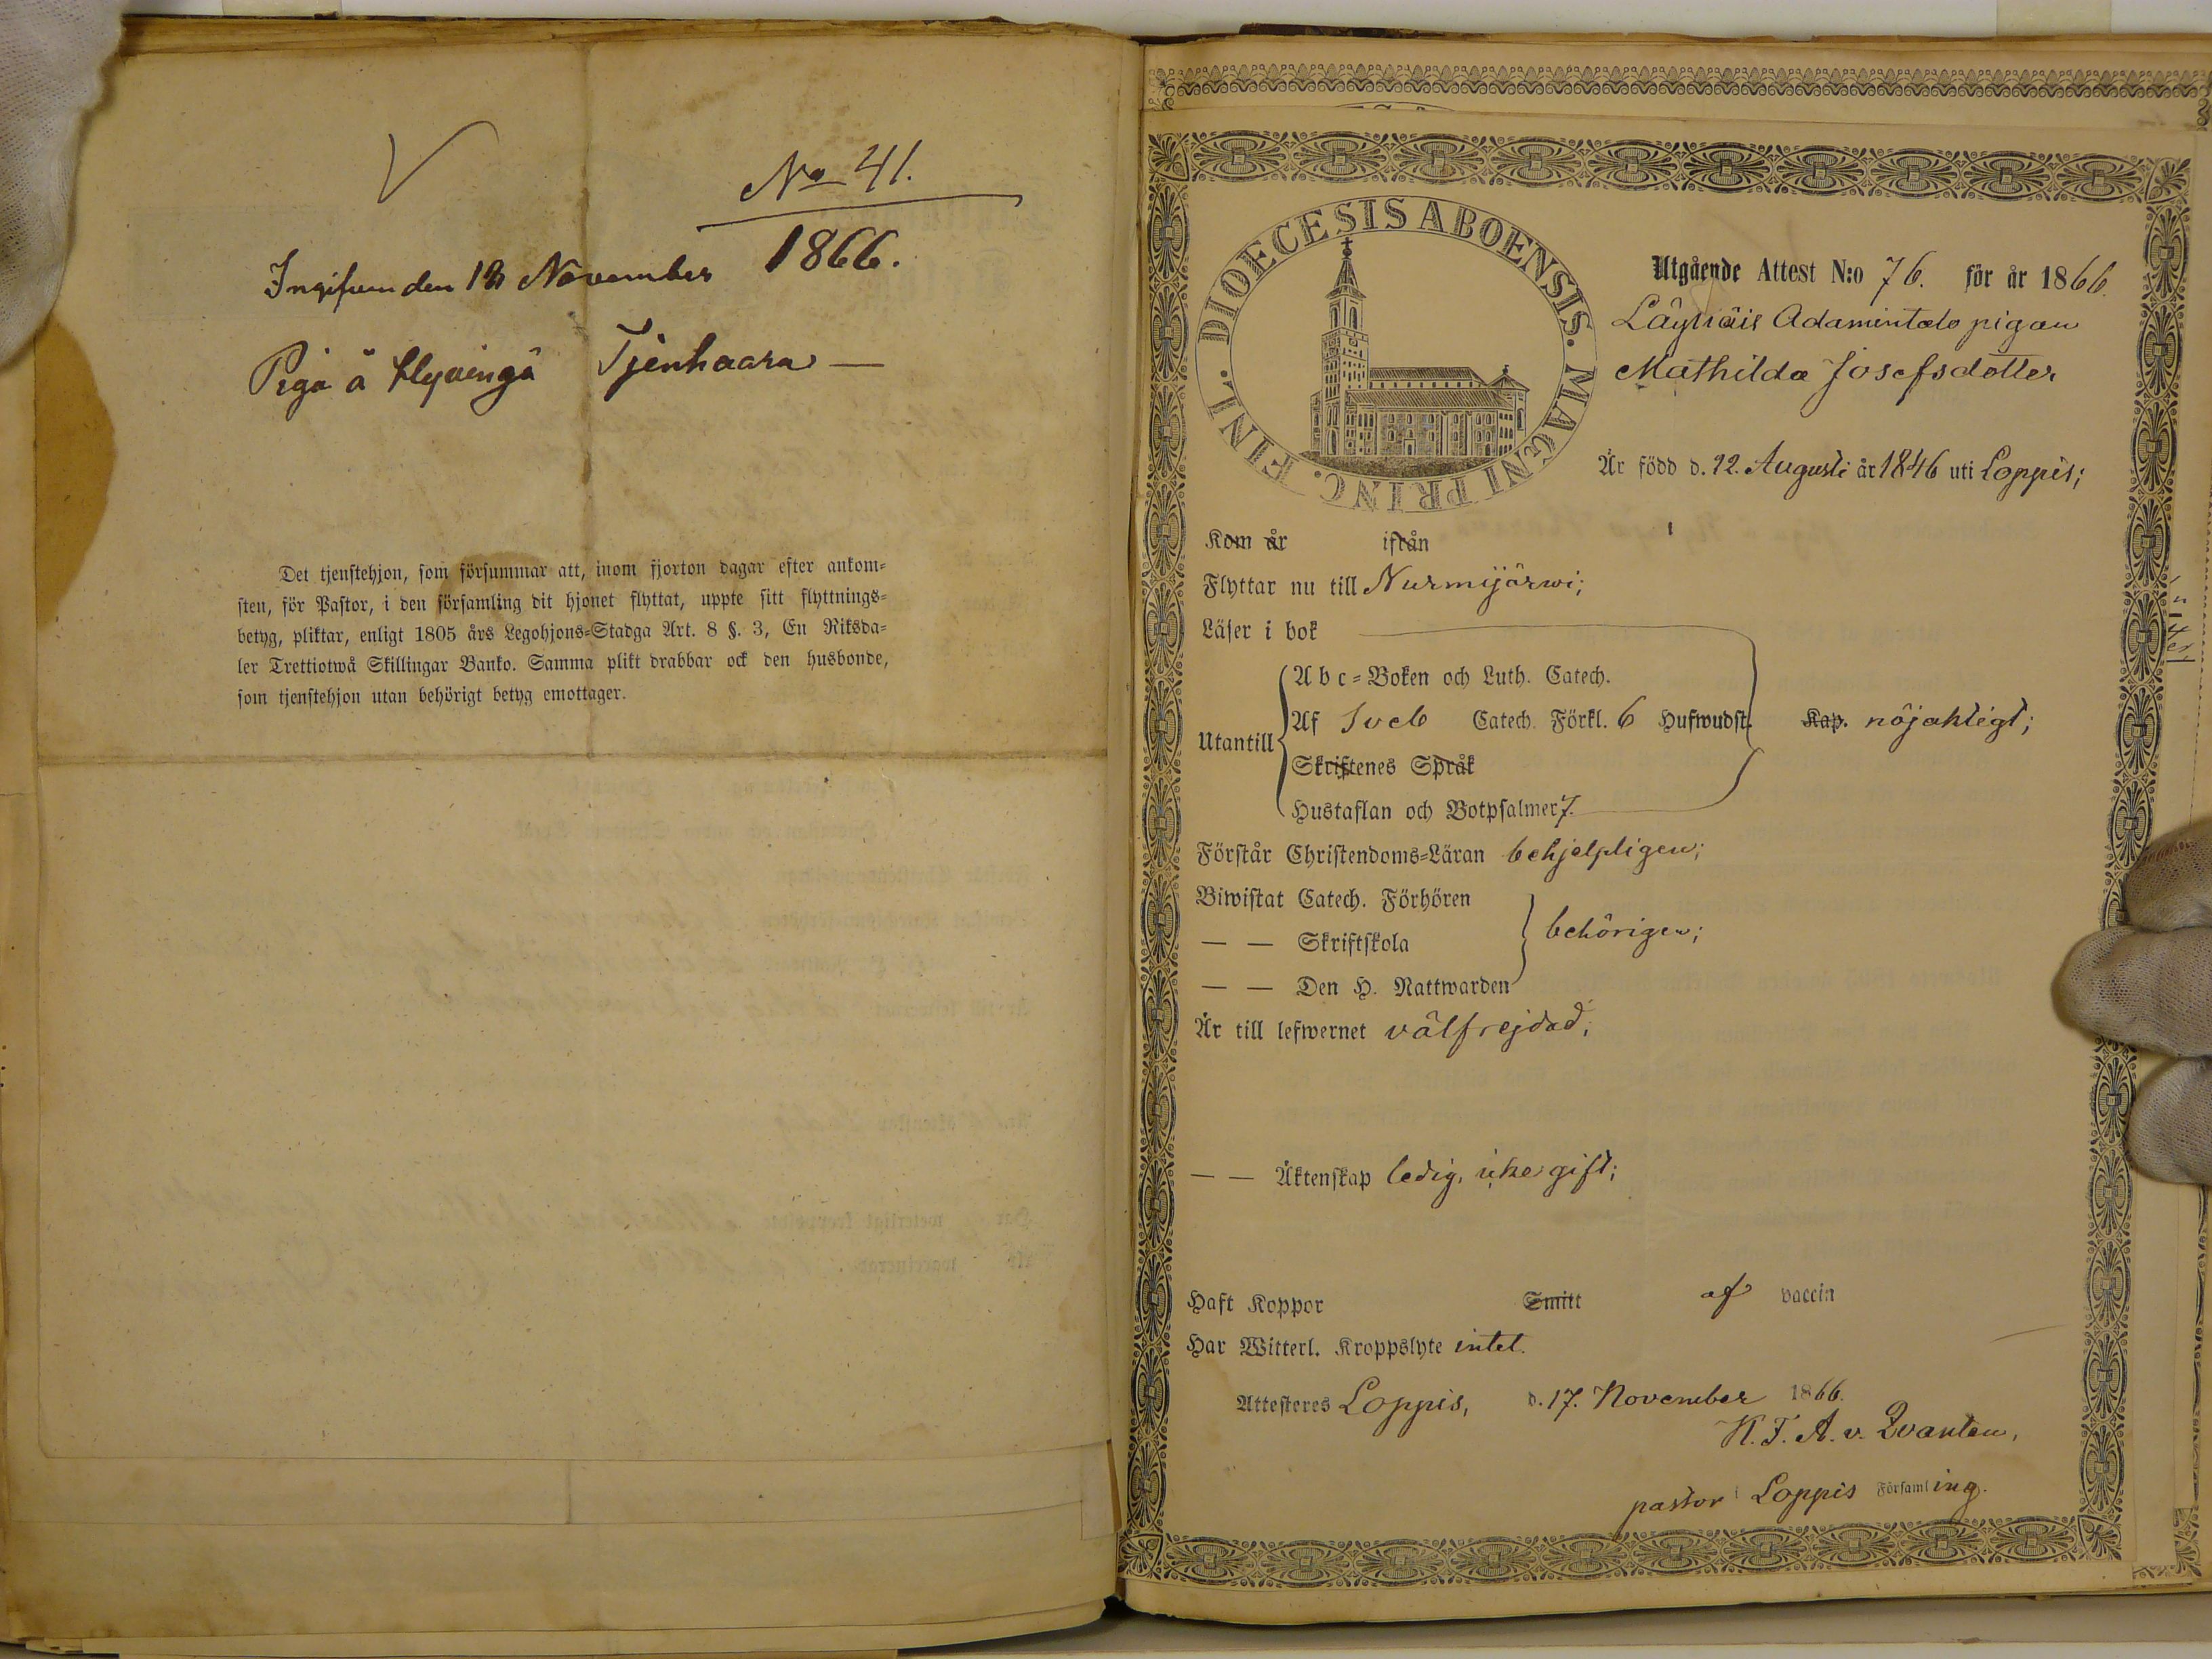 No 41.
1866.
Ingifven den 18 November
Piga å Hyvingä Tjenhaara —
Det tjenstehjon, som försummar att, inom fjorton dagar efter ankom-
sten, för Pastor, i den församling dit hjonet flyttat, uppte sitt flyttnings-
betyg, pliktar, enligt 1805 års Legohjons-Stadga Art. 8 §. 3, En Riksda-
ler Trettiotwå Skillingar Banko. Samma plikt drabbar ock den husbonde,
som tjenstehjon utan behörigt betyg emottager.
DIOECESIS ABOENSIS. MAGNI PRINC. FINL.
Utgående Attest N:o 76. för år 1866.
Läyliäis Adamintalo pigan
Mathilda Josefsdotter
Är född d. 12. Augusti år 1846 uti Loppis;
Kom år ifrån
Flyttar nu till Nurmijärwi;
Läser i bok
Abc-Boken och Luth. Catech.
Utantill Af Sveb Catech. Förkl. 6 Hufwudst. Kap. nöjaktigt;
Skriftenes Språk
Hustaflan och Botpsalmer 7.
Förstår Christendoms-Läran behjelpligen;
Biwistat Catech. Förhören
— — Skriftskola behörigen;
— — Den H. Nattwarden
Är till lefwernet välfrejdad;
— — Äktenskap ledig, icke gift;
Haft Koppor Smitt af vaccin
Har Witterl. Kroppslyte intet.
Attesteres Loppis, d. 17. November 1866.
K. F. A. v. Qvanten,
pastor i Loppis Församling.